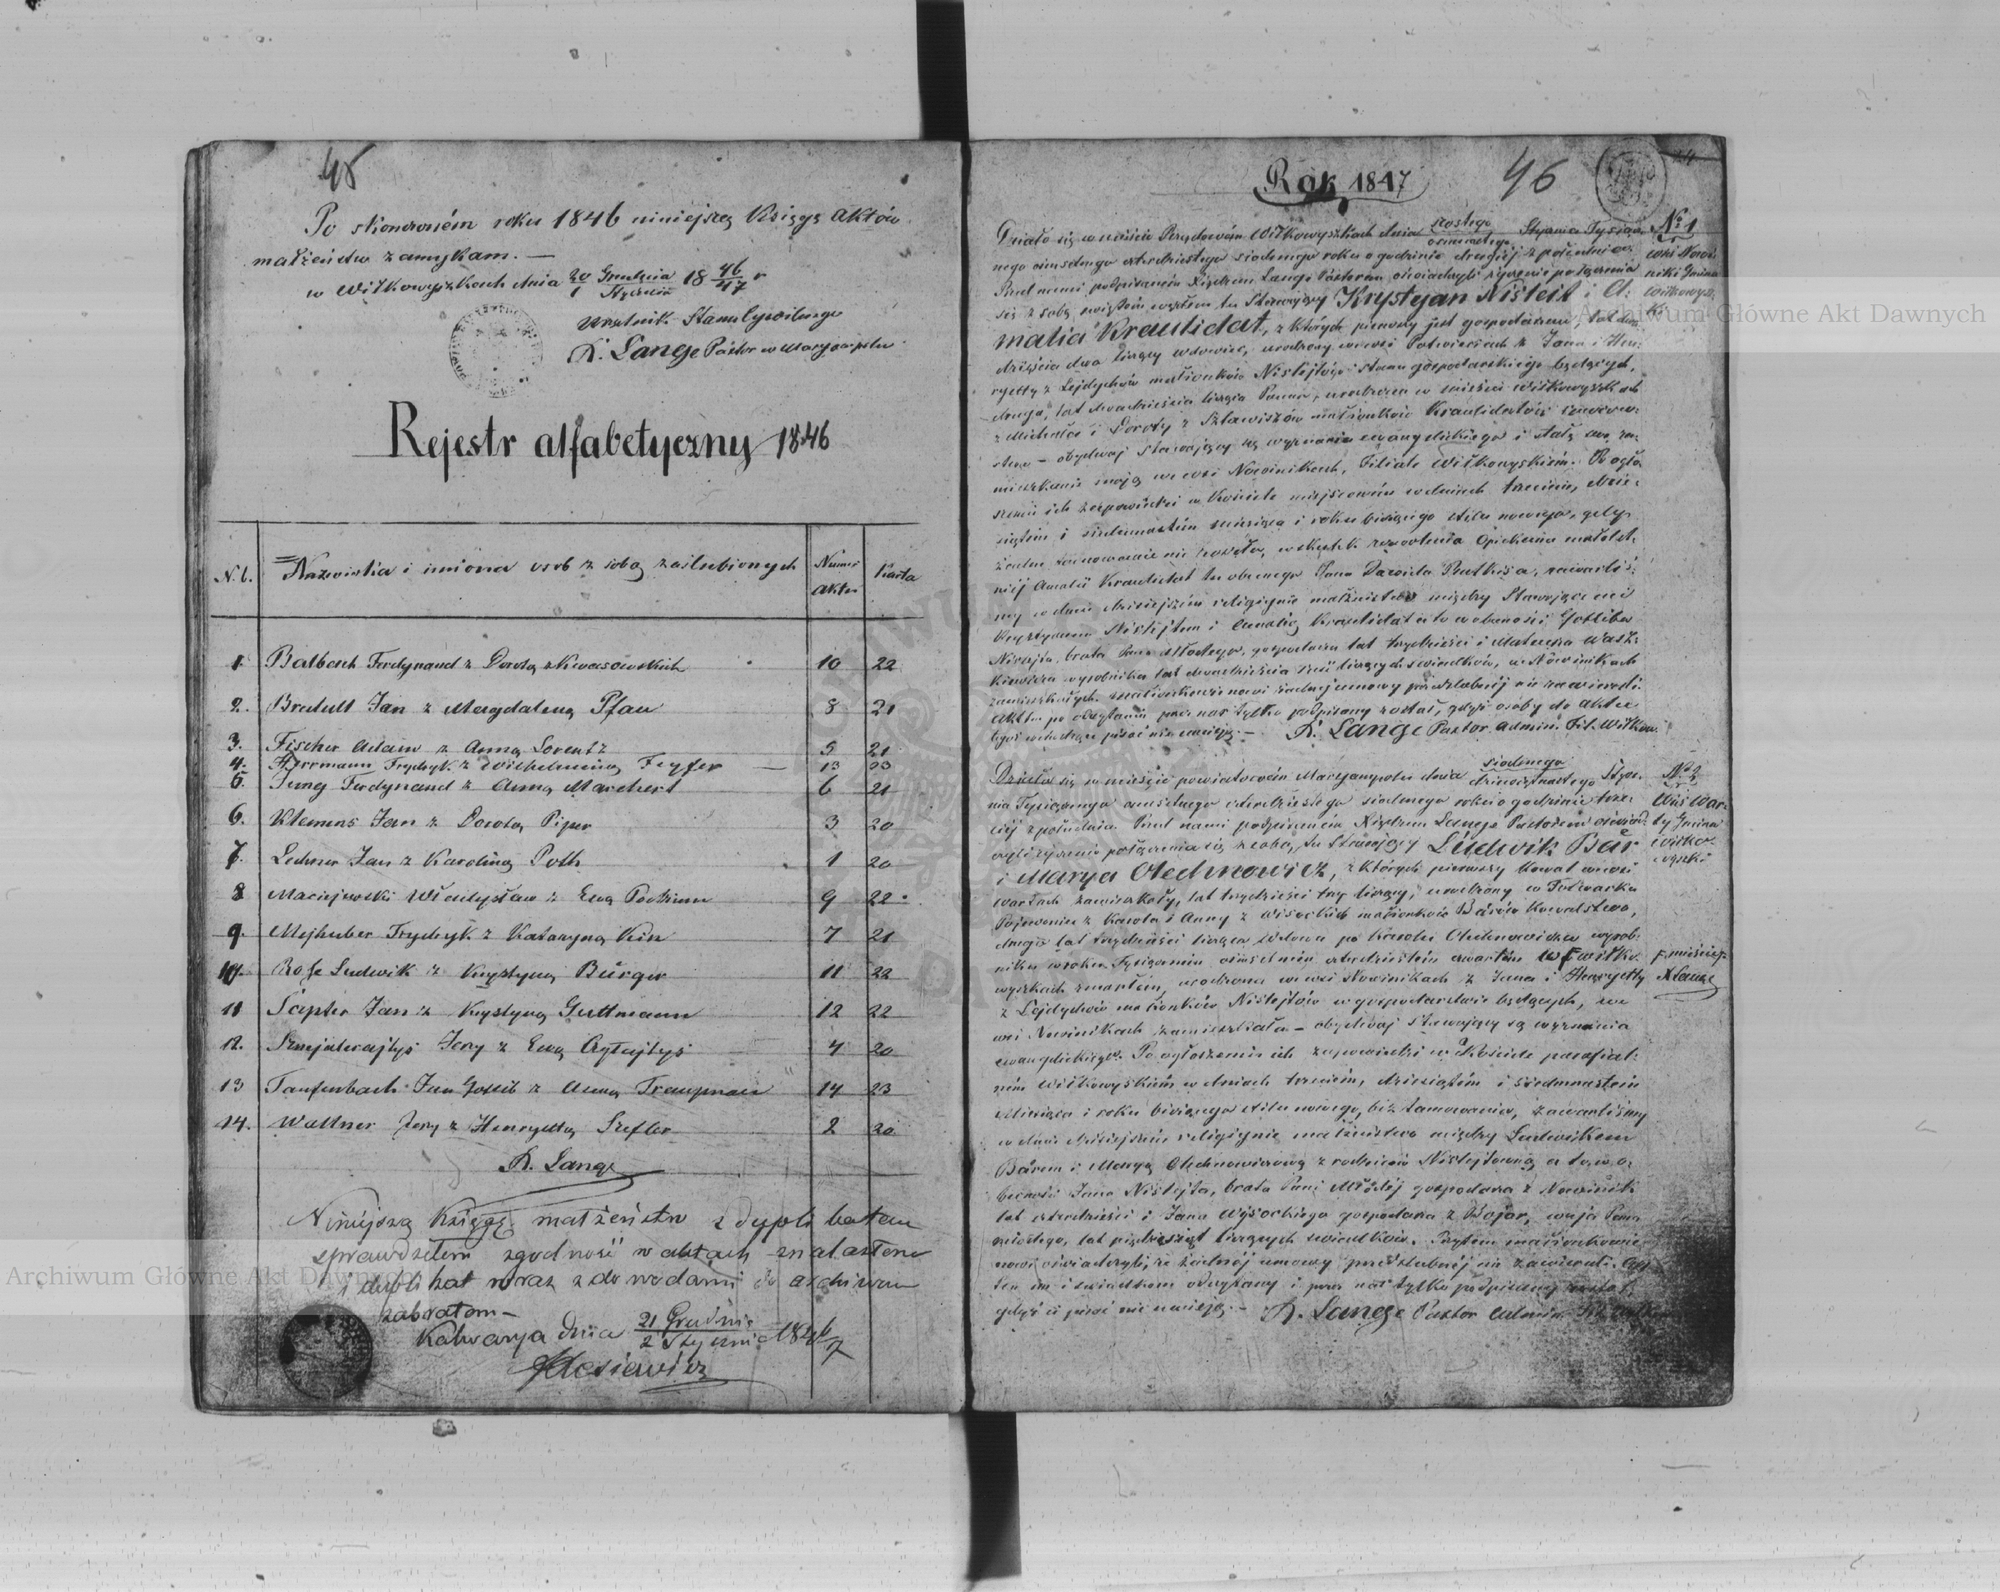 45
Po skończoném roku 1846 niniejszą Księgę Aktów
małżeństw zamykam. —
w Wiłkowyszkach dnia 20 Grudnia / 1 Stycznia 18 46/47 r
Urzędnik Stanu Cywilnego
K. Lange Pastor w Maryampolu
Rejestr alfabetyczny 1846
N. b. Nazwiska i imiona osób z sobą zaślubionych Numer aktu Karta
1. Balbach Ferdynand z Dorotą z Kwasowskich 10 22
2. Bradull Jan z Magdaleną Pfau 8 21
3. Fischer Adam z Anną Lorentz 5 21
4. Herrmann Frydryk z Wilhelminą Feyfer — 13 23
5. Jung Ferdynand z Anną Marchert 6 21
6. Klemens Jan z Dorotą Piper 3 20
7. Lechner Jan z Karoliną Poth 1 20
8 Maciejewski Władysław z Ewą 9 22
9. Mejhuber Frydryk z Katarzyną Kin 7 21
10. Rose Ludwik z Krystyną Bürger 11 22
11 Sapter Jan z Krystyną Guttmann 12 22
12. Jerzy z Ewą 4 20
13 Taufenbach Jan Gotlib z Anną Traupman 14 23
14. Wallner Jerzy z Henryettą Szefler 2 20
K. Lange
Niniejszą Księgę małżeństw z duplikatem
sprawdziłem zgodność w aktach znalazłem
i duplikat wraz z dowodami do archiwum
zabrałem —
Kalwarya dnia 21 Grudnia / 2 Stycznia 1846/7
Rok 1847
46
Działo się w mieście Wiłkowyszkach dnia szóstego / osiemnastego Stycznia Tysiąc N° 1
nego ośmsetnego czterdziestego siódmego roku o godzinie drugiéj z południa. wieś Nowi-
Przed nami podpisanym Księdzem Lange Pastorem oświadczyli życzenie połączenia niki Gmina
się z sobą związkiem małżeństwa tu Stawający Krystyan Nisleit i A- Wiłkowysz-
malia Krautidat, z których pierwszy jest gospodarzem, lat
dzieścia dwa liczący wdowiec, urodzony we wsi z Jana i Hen-
ryetty z Lejdychów małżonków Nislejtów stanu gospodarskiego będących,
druga, lat dwadzieścia licząca Panna, urodzona w mieście Wiłkowyszkach
z Michała i Doroty z małżonków Krautidatów
obydwaj stawający są wyznania ewangelickiego i stałe swe za-
mieszkanie mają we wsi Nowinikach, Filiale Wiłkowyskiém. Po ogło-
szeniu ich zapowiedzi w Kościele miejscowém w dniach trzecim, dzie-
siątém i siedmnastém miesiąca i roku bieżącego stilu nowego, gdy
żadne tamowanie nie zaszło, wskutek zezwolenia Opiekuna małolet-
niéj Amalii Krautidat tu obecnego Jana Dawida, zawarliś-
my w dniu dzisiejszém religijnie małżeństwo między Stawającemi
Krystyanem Nislejtem i Amalią Krautidat a to w obecności Gottliba
Nislejta, brata Pana Młodego, gospodarza lat trzydzieści i Mateusza Wasz-
kiewicza wyrobnika lat dwadzieścia liczących świadków, w Nowinikach
zamieszkałych. Małżonkowie nowi żadnéj umowy przedślubnéj nie zawierali.
Akt ten po odczytaniu przez nas tylko podpisany został, gdyż osoby do aktu
tego wchodzące pisać nie umieją. — K. Lange Pastor Admin. Fil. Wiłkow.
Działo się w mieście powiatowém Maryampolu dnia siódmego / dziewiętnastego Stycz- N° 2
nia Tysiącznego ośmsetnego czterdziestego siódmego roku o godzinie trze- Wieś War-
ciéj z południa. Przed nami podpisaném Księdzem Lange Pastorem oświad- ty Gmina
czyli życzenie połączenia się z sobą, tu Stawający Ludwik Bär Wiłko-
i Marya Olechnowicz, z których pierwszy kowal we wsi wyszki
Wartach zamieszkały, lat trzydzieści trzy liczący, urodzony w Folwarku
Pojewoniu z Karola i Anny z Wisockich małżonków Bärów Kowalstwa,
druga lat trzydzieści licząca Wdowa po Karolu Olechnowiczu wyrob-
niku w roku Tysiączném ośmsetném czterdziestém czwartém w Wiłko-
wyszkach zmarłém, urodzona we wsi Nowinikach z Jana i Henryetty K Lange
z Lejdychów małżonków Nislejtów w gospodarstwie będących, we
wsi Nowinikach zamieszkała — obydwaj stawający są wyznania
ewangelickiego. Po ogłoszeniu ich zapowiedzi w Kościele parafial-
ném Wiłkowyskiém w dniach trzecim, dziesiątém i siedmnastém
Miesiąca i roku bieżącego stilu nowego, bez tamowania, zawarliśmy
w dniu dzisiejszém religijnie małżeństwo między Ludwikiem
Bärem i Maryą Olechnowiczową z rodziców Nislejtówną a to w o-
becności Jana Nislejta, brata Pani Młodéj gospodarza z Nowinik
lat czterdzieści i Jana Wysockiego gospodarza z Bojar, wuja Pana
młodego, lat pięćdziesiąt liczących świadków. Przytem małżonkowie
nowi oświadczyli, że żadnéj umowy przedślubnéj nie zawierali. Akt
ten im i świadkom odczytany i przez nas tylko podpisany został,
gdyż ci pisać nie umieją. — K. Lange Pastor Admin. Fil.
Archiwum Główne Akt Dawnych
Archiwum Główne Akt Dawnych